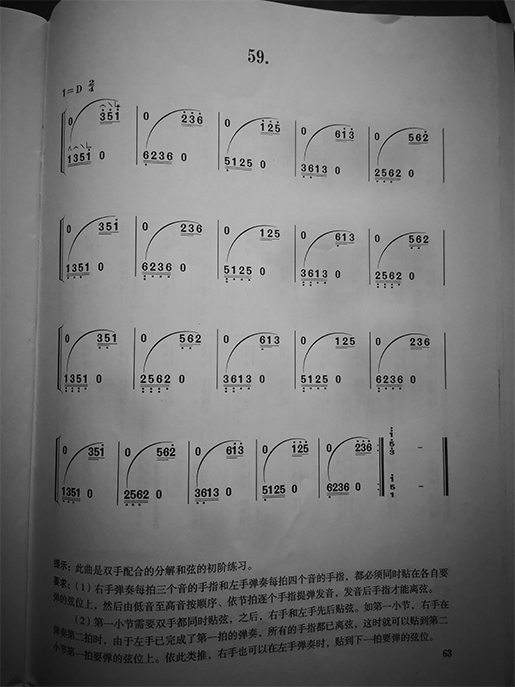 59.
1=D 2/4
0 351 0 236 0 125 0 613 0 562
1351 0 6236 0 5125 0 3613 0 2562 0
0 351 0 236 0 125 0 613 0 562
1351 0 6236 0 5125 0 3613 0 2562 0
0 351 0 562 0 613 0 125 0 236
1351 0 2562 0 3613 0 5125 0 6236 0
0 351 0 562 0 613 0 125 0 236 1 5 3 -
1351 0 2562 0 3613 0 5125 0 6236 0 1 5 1 -
提示:此曲是双手配合的分解和弦的初阶练习。
要求:(1)右手弹奏每拍三个音的手指和左手弹奏每拍四个音的手指,都必须同时贴在各自要
弹的弦位上,然后由低音至高音按顺序、依节拍逐个手指提弹发音,发音后手指才能离弦。
(2)第一小节需要双手都同时贴弦,之后,右手和左手先后贴弦。如第一小节,右手在
弹奏第二拍时,由于左手已完成了第一拍的弹奏,所有的手指都已离弦,这时就可以贴到第二
小节第一拍要弹的弦位上。依此类推,右手也可以在左手弹奏时,贴到下一拍要弹的弦位。
63